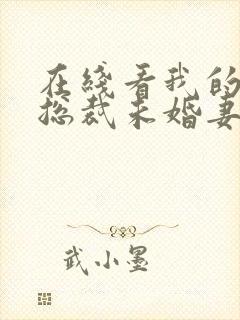 在綫看我的
总裁未婚妻
武小墨